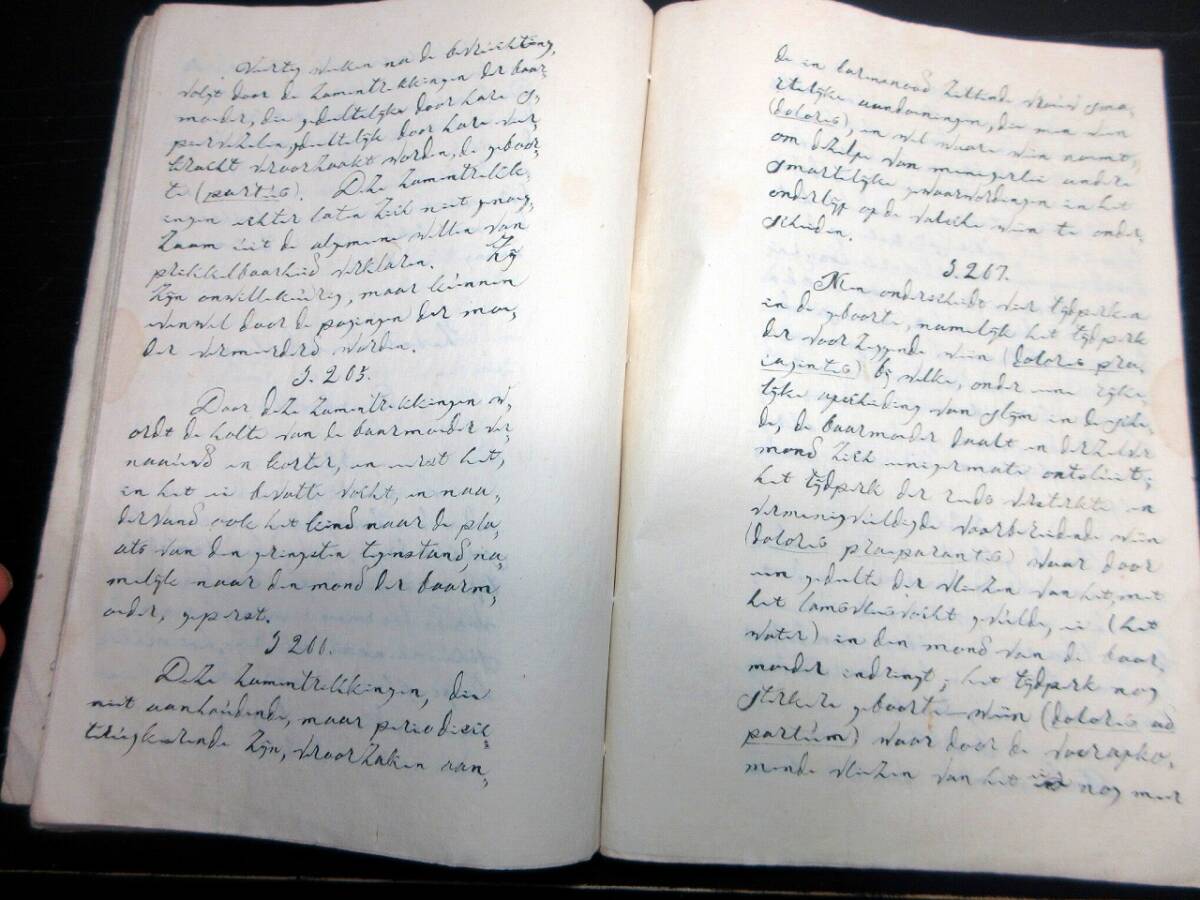 Veertig weken na de bevruchting,
volgt door de zamentrekkingen der baar,
moeder, die gedeeltelijke door hare
gedeeltelijk door hare veer,
kracht veroorzaakt worden, de geboor,
te (partus). Deze zamentrekk,
ingen echter laten zich niet genoeg,
zaam uit de algemene wetten van
prikkelbaarheid verklaren. Zij
zijn onwillekeurig, maar kunnen
evenwel door de pogingen der moe,
der vermeerderd worden.
§ 265.
Door deze zamentrekkingen w,
ordt de holte van de baarmoeder ver,
naauwd en korter, en eerst het,
in het ei bevatte vocht, en naa,
derhand ook het kind naar de pla,
ats van den geringsten tegenstand, na,
melijk naar den mond der baarm,
oeder, geperst.
§ 266.
Deze zamentrekkingen, die
niet aanhoudende, maar periodiesch
terugkeerende zijn, veroorzaken aan,
de in barensnood zittende vrouw sma,
rtelijke aandoeningen, die men ween
(dolores), en wel waare ween noemt,
om dezelfe van menigerlei andere
smartelijke gewaarwordingen in het
onderlijf op de valsche ween te onder,
scheiden.
§ 267.
Men onderscheidt vier tijdperken
in de geboorte, namelijk het tijdperk
der voorzeggende ween (dolores prae,
sagientes) bij welke, onder eene rijke,
lijke afscheiding van slijm in de sche,
de, de baarmoeder daalt en derzelver
mond zich eenigermate ontsluit;
het tijdperk der reeds versterkte en
vermenigvuldigde voorbereidende ween
(dolores praeparantes) waar door
een gedeelte der vliezen van het, met
het lamsvliesvocht gevulde, ei (het
water) in den mond van de baar,
moeder indringt; het tijdperk nog
sterkere geboorte ween (dolores ad
partum) waar door de voorafko,
mende vliezen van het ei nog meer